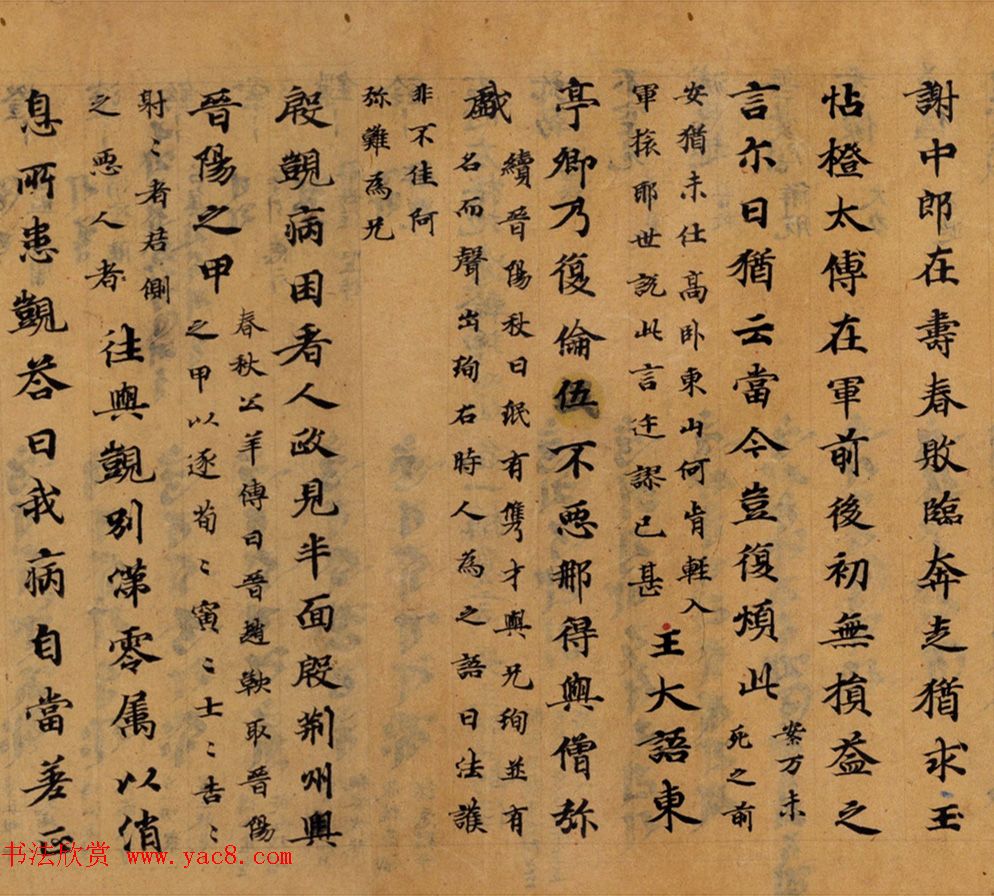 謝中郎在壽春敗臨奔走猶求玉
怗橙太傅在軍前後初無損益之
言尒日猶云當今豈復煩此
案万未
死之前
安猶未仕高卧東山何肯輕入
軍旅耶世説此言迕謬已甚
王大語東
亭卿乃復倫伍不惡那得與僧弥
戲
續晉陽秋曰珉有儁才與兄珣並有
名而聲出珣右時人為之語曰法護
非不佳阿
弥難為兄
殷覬病困看人政見半面殷荊州興
晉陽之甲
春秋公羊傳曰晉趙鞅取晉陽
之甲以逐荀〻寅〻士〻吉〻
射〻者君側
之惡人者
往與覬別涕零属以消
息所患覬荅曰我病自當差正
书法欣赏 www.yac8.com